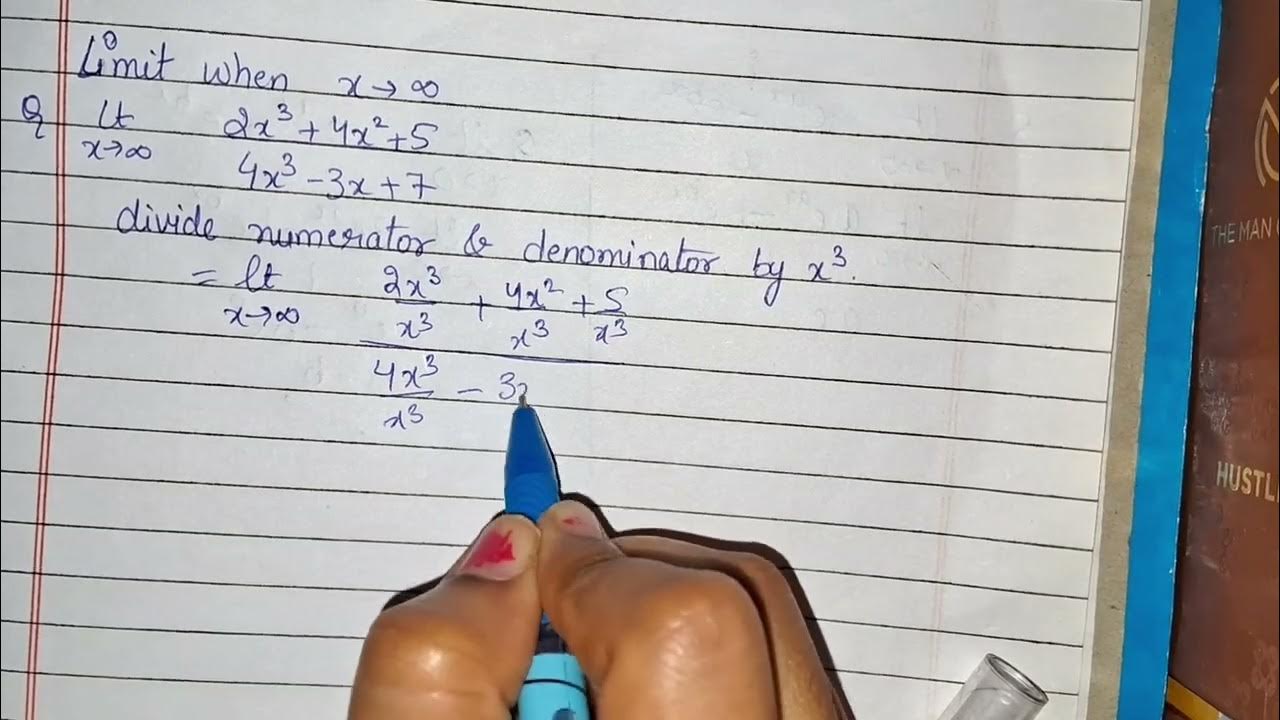 Limit when x→∞
Q lt 2x³ + 4x² + 5
x→∞ 4x³ - 3x + 7
divide numerator & denominator by x³.
= lt 2x³ + 4x² + 5
x→∞ x³ x³ x³
4x³ - 3x
x³
THE MAN
HUSTL